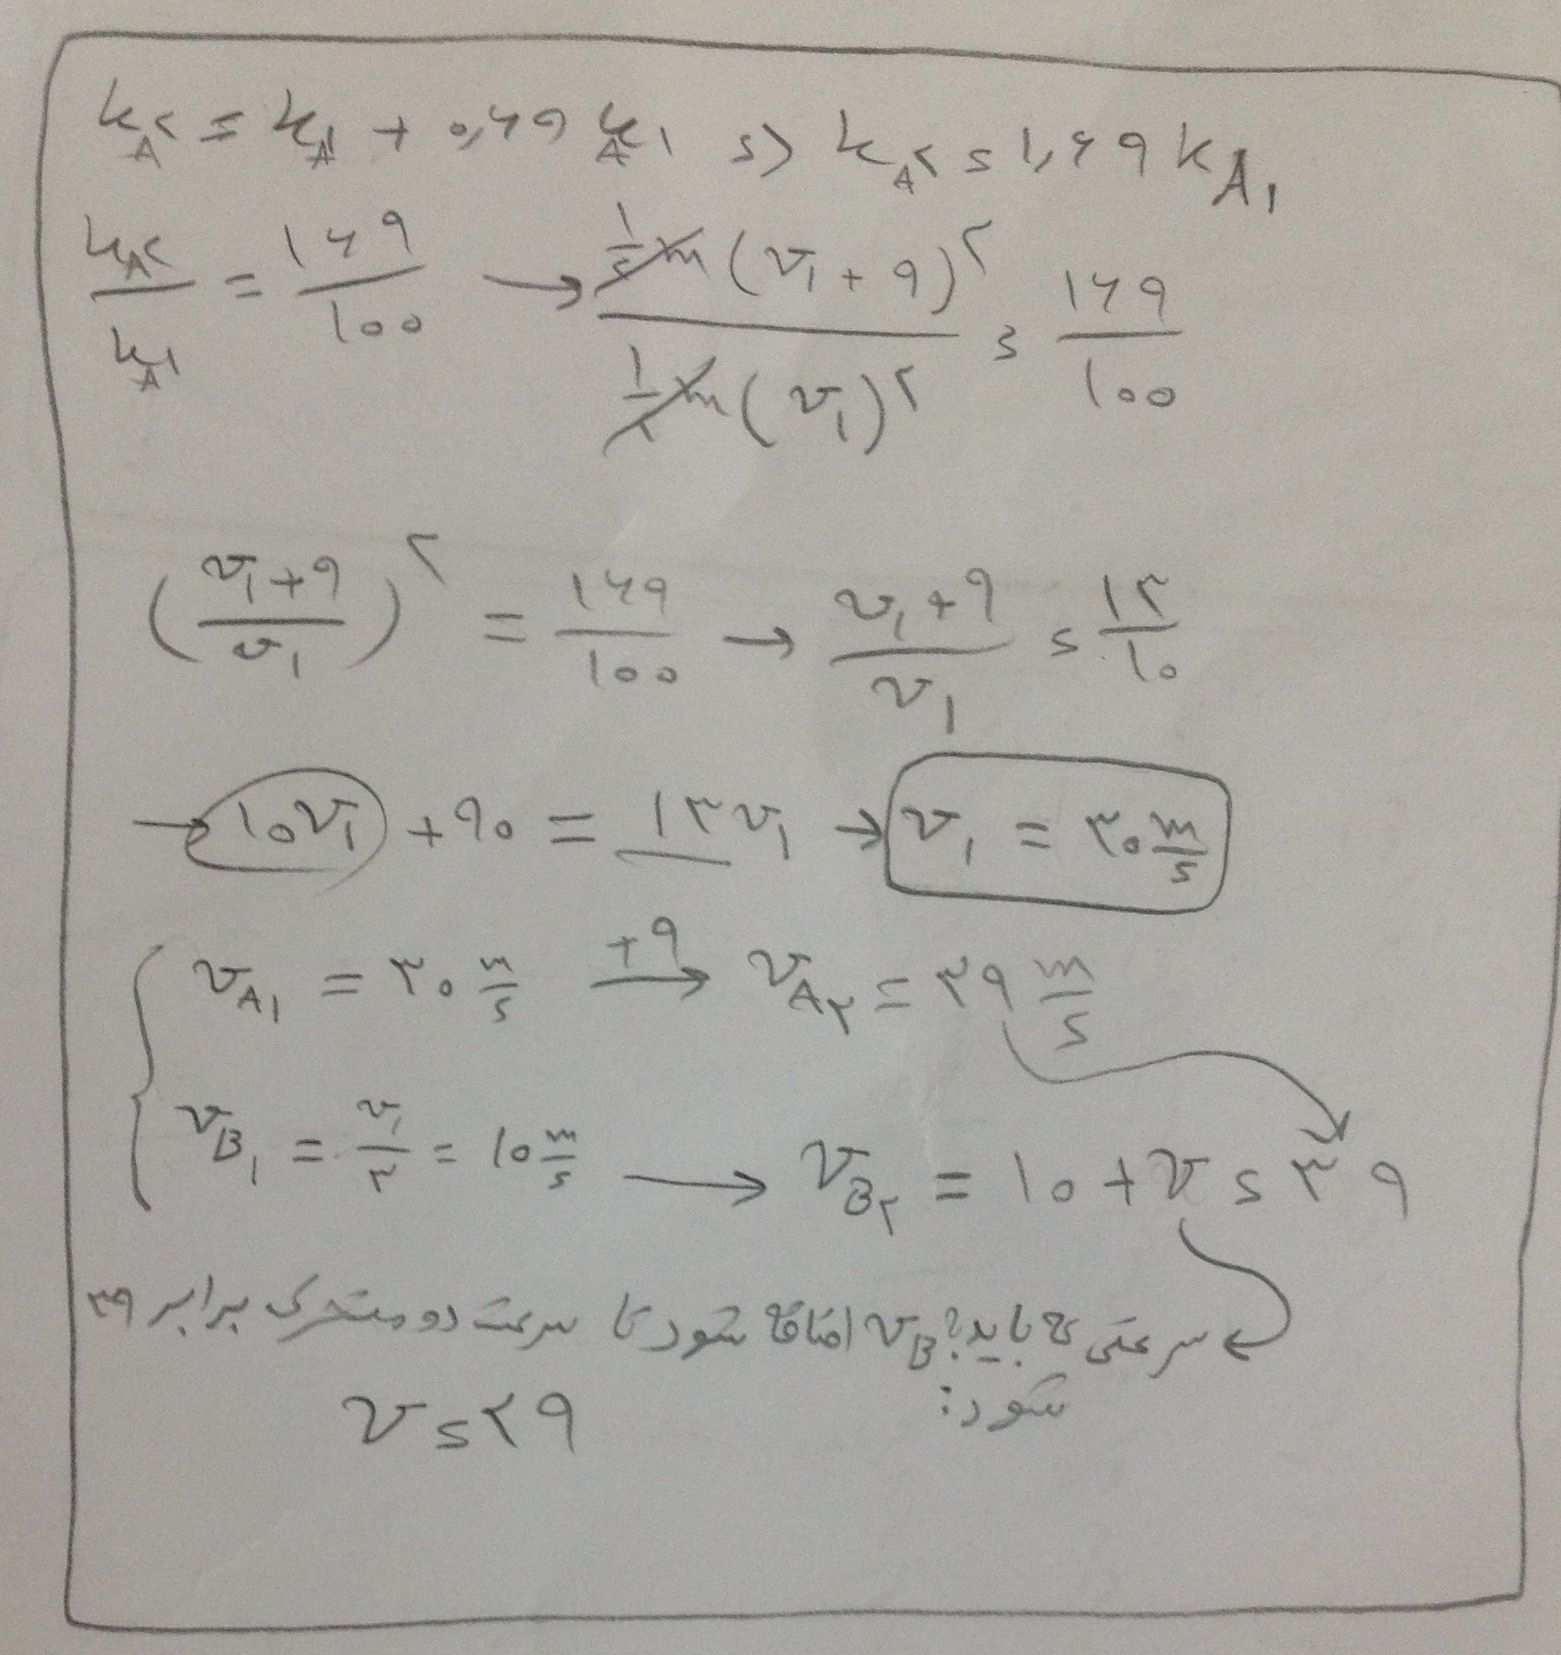 K_A۲ = K_A۱ + ۰,۶۹ K_A۱ => K_A۲ = ۱,۶۹ K_A۱
K_A۲ / K_A۱ = ۱۶۹ / ۱۰۰ → ½ m (v₁ + ۹)^۲ / ½ m (v₁)^۲ = ۱۶۹ / ۱۰۰
((v₁ + ۹) / v₁)^۲ = ۱۶۹ / ۱۰۰ → (v₁ + ۹) / v₁ = ۱۳ / ۱۰
→ ۱۰v₁ + ۹۰ = ۱۳v₁ → v₁ = ۳۰ m/s
v_A₁ = ۳۰ m/s +۹ → v_A۲ = ۳۹ m/s
v_B₁ = v₁ / ۳ = ۱۰ m/s → v_B۲ = ۱۰ + v = ۳۹
سرعتی که باید به v_B اضافه شود تا سرعت دو متحرک برابر ۳۹
شود:
v = ۲۹